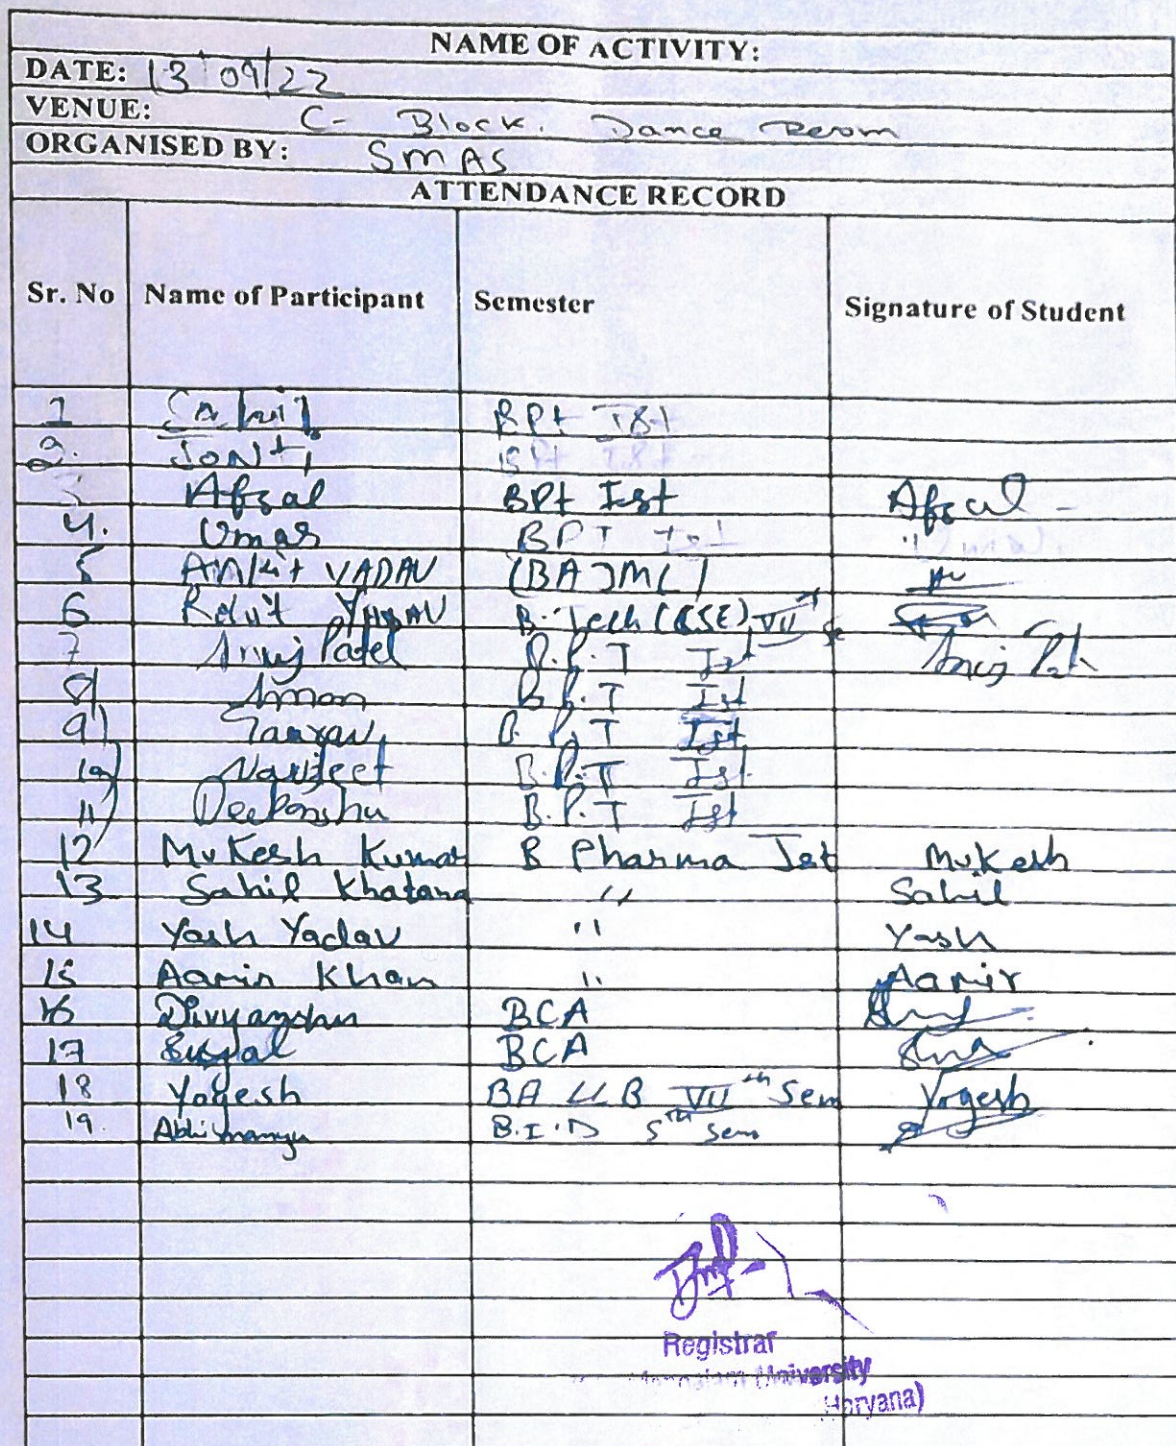 NAME OF ACTIVITY:
DATE: 13/09/22
VENUE: C- Block. Dance Room
ORGANISED BY: SMAS
ATTENDANCE RECORD
Sr. No Name of Participant Semester Signature of Student
1 Sahil BPt Ist
2. Jonti BPt Ist
3 Afzal BPt Ist Afzal
4. Umar BPT Ist "
5 Ankit YADAV (BAJMC)
6 Rohit YADAV B.Tech (CSE) VII
7 Anuj Patel B.P.T Ist Anuj
8) Aman B.P.T Ist
9) B.P.T Ist
10) Navjeet B.P.T Ist
11) Deepanshu B.P.T Ist
12 Mukesh Kumar B Pharma Ist Mukesh
13 Sahil Khatana " Sahil
14 Yash Yadav " Yash
15 Aamir Khan " Aamir
16 Divyanshu BCA
17 BCA
18 Yogesh BA LLB VII th Sem Yogesh
19. Abhimanyu B.I.D 5th Sem
Registrar
University
Haryana)